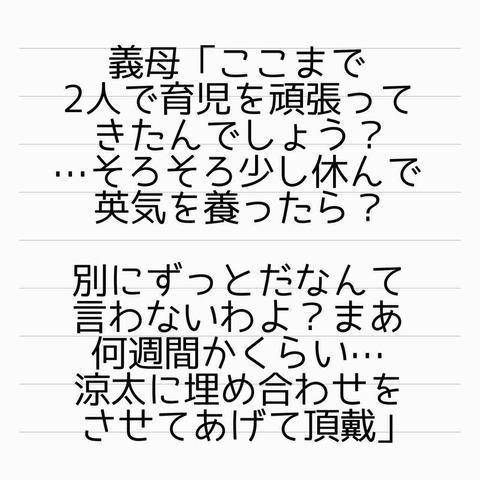 義母「ここまで
2人で育児を頑張って
きたんでしょう？
…そろそろ少し休んで
英気を養ったら？
別にずっとだなんて
言わないわよ？まあ
何週間かくらい…
涼太に埋め合わせを
させてあげて頂戴」